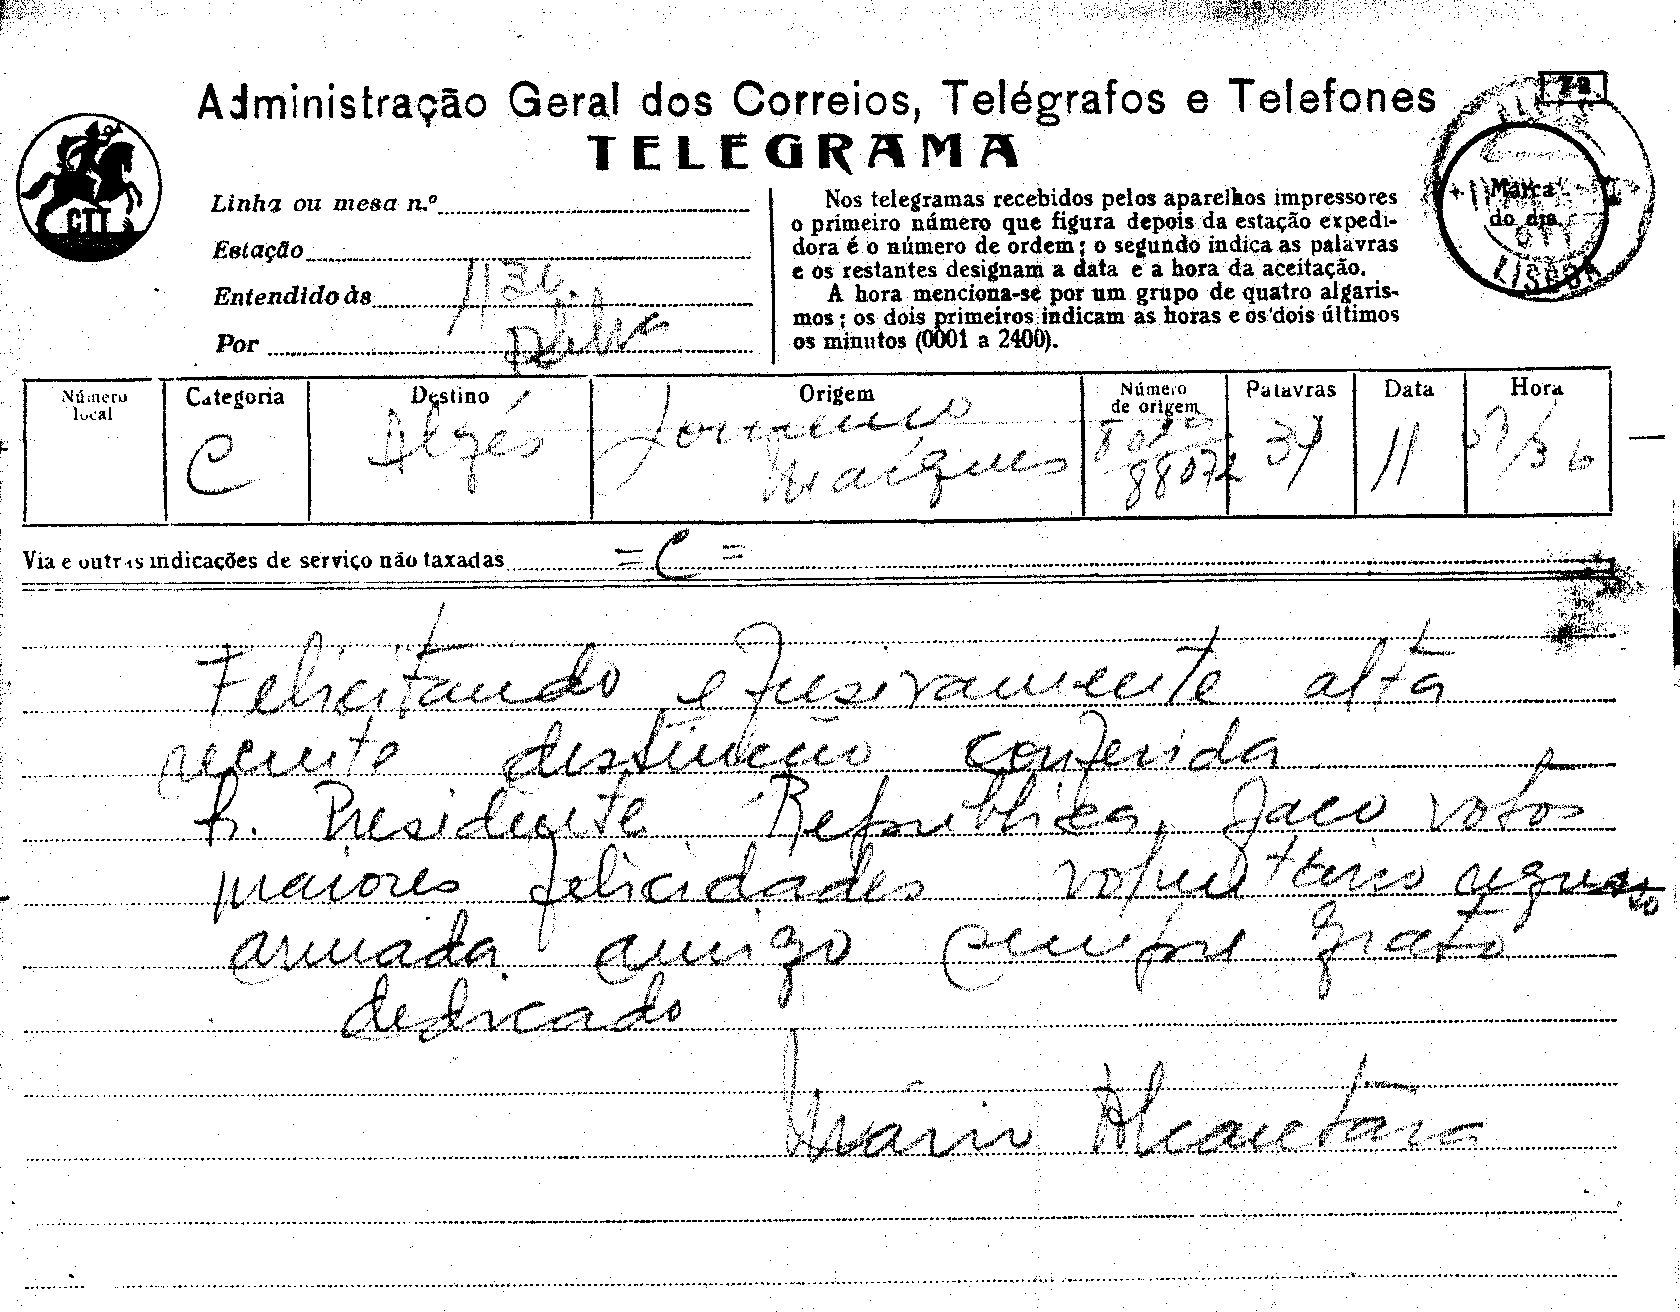 Administração Geral dos Correios, Telégrafos e Telefones
TELEGRAMA
CTT
Linha ou mesa n.º
Estação
Entendido às 1134.
Por
Nos telegramas recebidos pelos aparelhos impressores
o primeiro número que figura depois da estação expedi-
dora é o número de ordem; o segundo indica as palavras
e os restantes designam a data e a hora da aceitação.
A hora menciona-se por um grupo de quatro algaris-
mos; os dois primeiros indicam as horas e os dois últimos
os minutos (0001 a 2400).
72
Marca
do dia
CTT
LISBOA
Número local
Categoria
Destino
Origem
Número de origem
Palavras
Data
Hora
C
Algés
Lourenço
Marques
88072
34
11
09/36
Via e outras indicações de serviço não taxadas = C =
Felicitando efusivamente alta
recente distinção conferida
Sr. Presidente República, faço votos
maiores felicidades voluntário regresso
armada amigo sempre grato
dedicado
Mário Alcantara